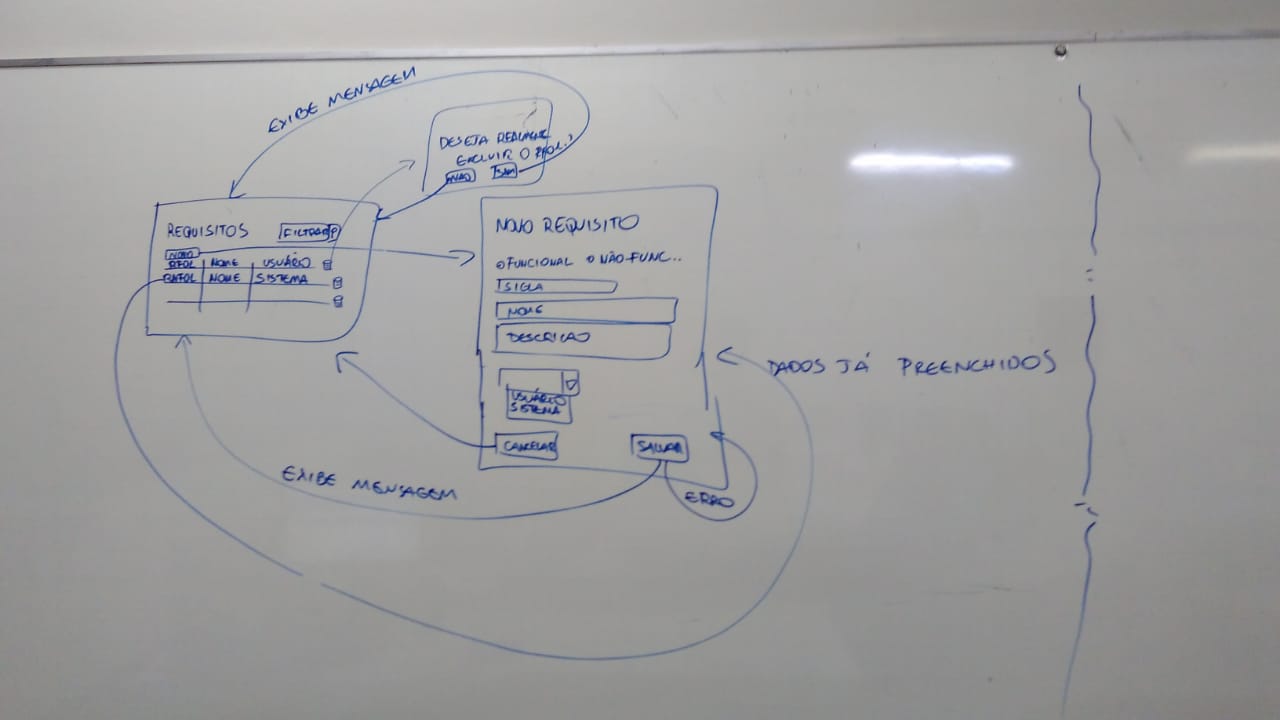 EXIBE MENSAGEM
DESEJA REALMENTE
EXCLUIR O RF01..?
NÃO SIM
REQUISITOS FILTRAR
NOVO
RF01 NOME USUÁRIO
RNF01 NOME SISTEMA
NOVO REQUISITO
FUNCIONAL NÃO-FUNC...
SIGLA
NOME
DESCRICAO
USUÁRIO
SISTEMA
CANCELAR SALVAR
DADOS JÁ PREENCHIDOS
EXIBE MENSAGEM
ERRO